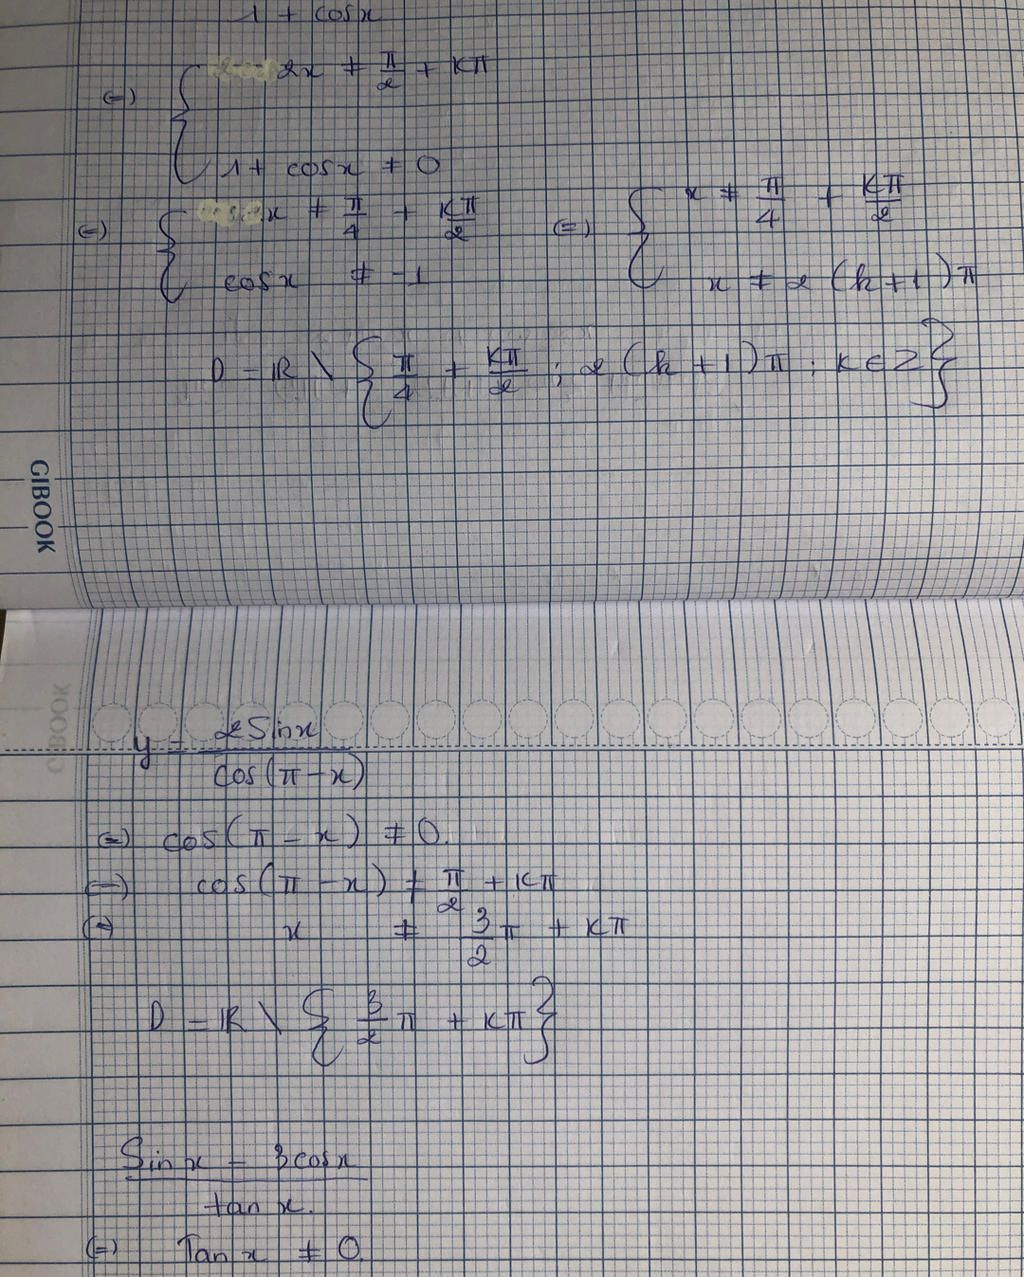 1 + cosx
(=) { 2x ≠ π/2 + Kπ
1 + cosx ≠ 0
(=) { x ≠ π/4 + Kπ/2 (=) { x ≠ π/4 + Kπ/2
cosx ≠ -1 x ≠ 2(k+1)π
D = ℝ \ { π/4 + Kπ/2 ; 2(k+1)π ; K ∈ Z }
GIBOOK
GIBOOK
y = 2Sinx / cos(π-x)
(=) cos(π - x) ≠ 0.
(=) cos(π - x) ≠ π/2 + Kπ
(=) x ≠ 3/2 π + Kπ
D = ℝ \ { 3/2 π + Kπ }
Sinx - 3cosx
tan x.
(=) Tan x ≠ 0.